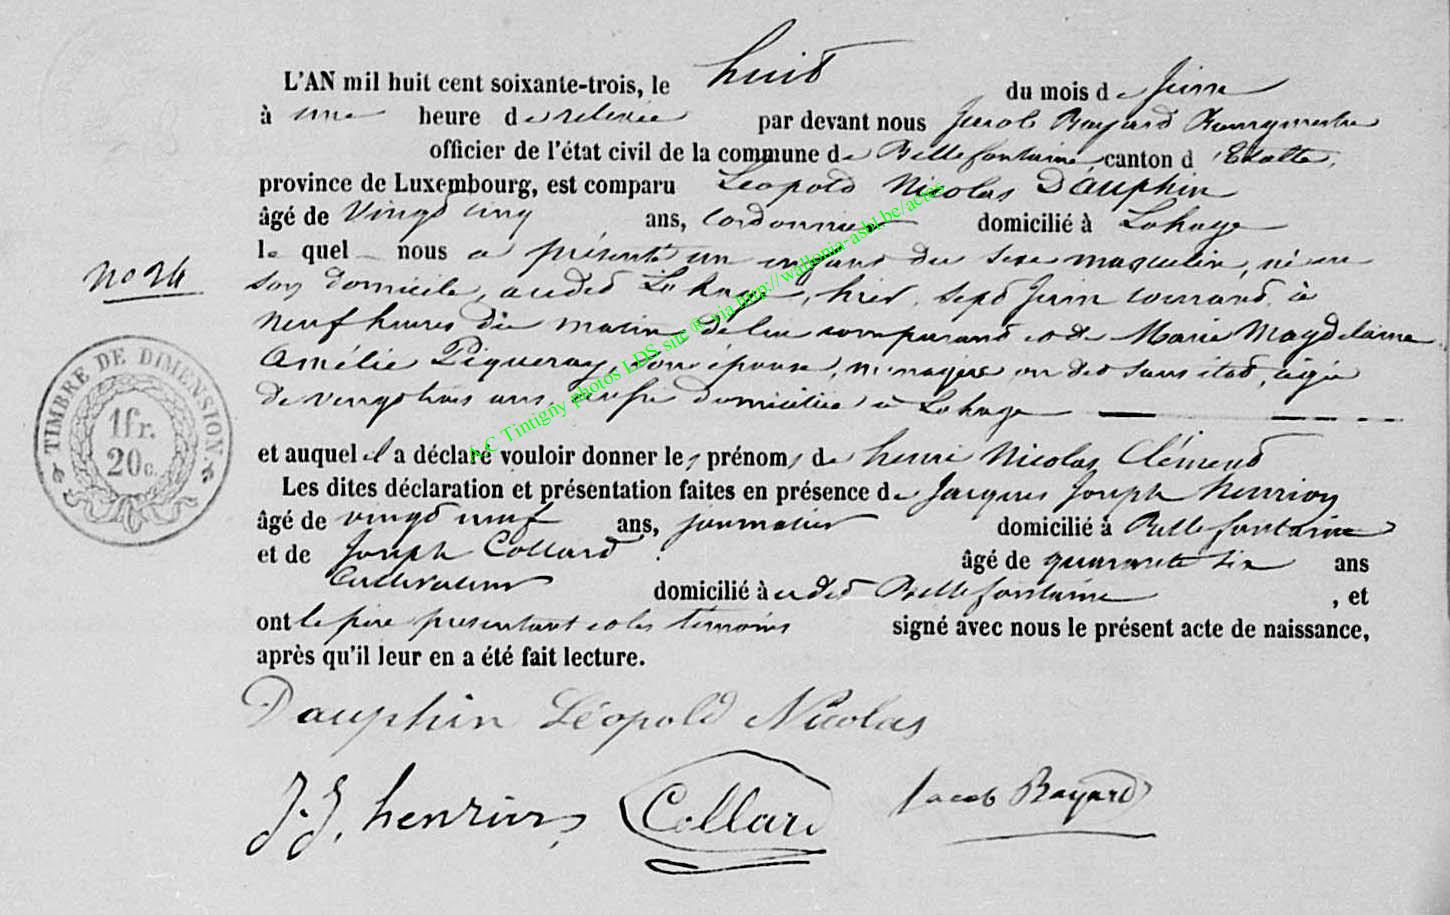 L'AN mil huit cent soixante-trois, le huit du mois de Juin
à une heure de relevée par devant nous Jacob Bayard Bourgmestre
officier de l'état civil de la commune de Bellefontaine canton d'Etalle,
province de Luxembourg, est comparu Léopold Nicolas Dauphin
âgé de Vingt cinq ans, Cordonnier domicilié à Lahage
le quel nous a présenté un enfant du sexe masculin, né en
son domicile, audit Lahage, hier, sept Juin courant, à
neuf heures du matin de lui comparant et de Marie Magdelaine
Amélie Piqueray, son épouse, ménagère on dit sans état, âgée
de vingt trois ans, domiciliée à Lahage
N° 24
TIMBRE DE DIMENSION
1 fr.
20 c.
et auquel il a déclaré vouloir donner les prénoms de henri Nicolas Clément
Les dites déclaration et présentation faites en présence de Jacques Joseph henrion
âgé de vingt neuf ans, journalier domicilié à Bellefontaine
et de Joseph Collard âgé de quarante six ans
Cultivateur domicilié à udit Bellefontaine, et
ont le père présentant et les témoins signé avec nous le présent acte de naissance,
après qu'il leur en a été fait lecture.
Dauphin Léopold Nicolas
J.J. henrion Collard Jacob Bayard
A.C Tintigny photos LDS sur ® via http://wallonia-asbl.be/actes